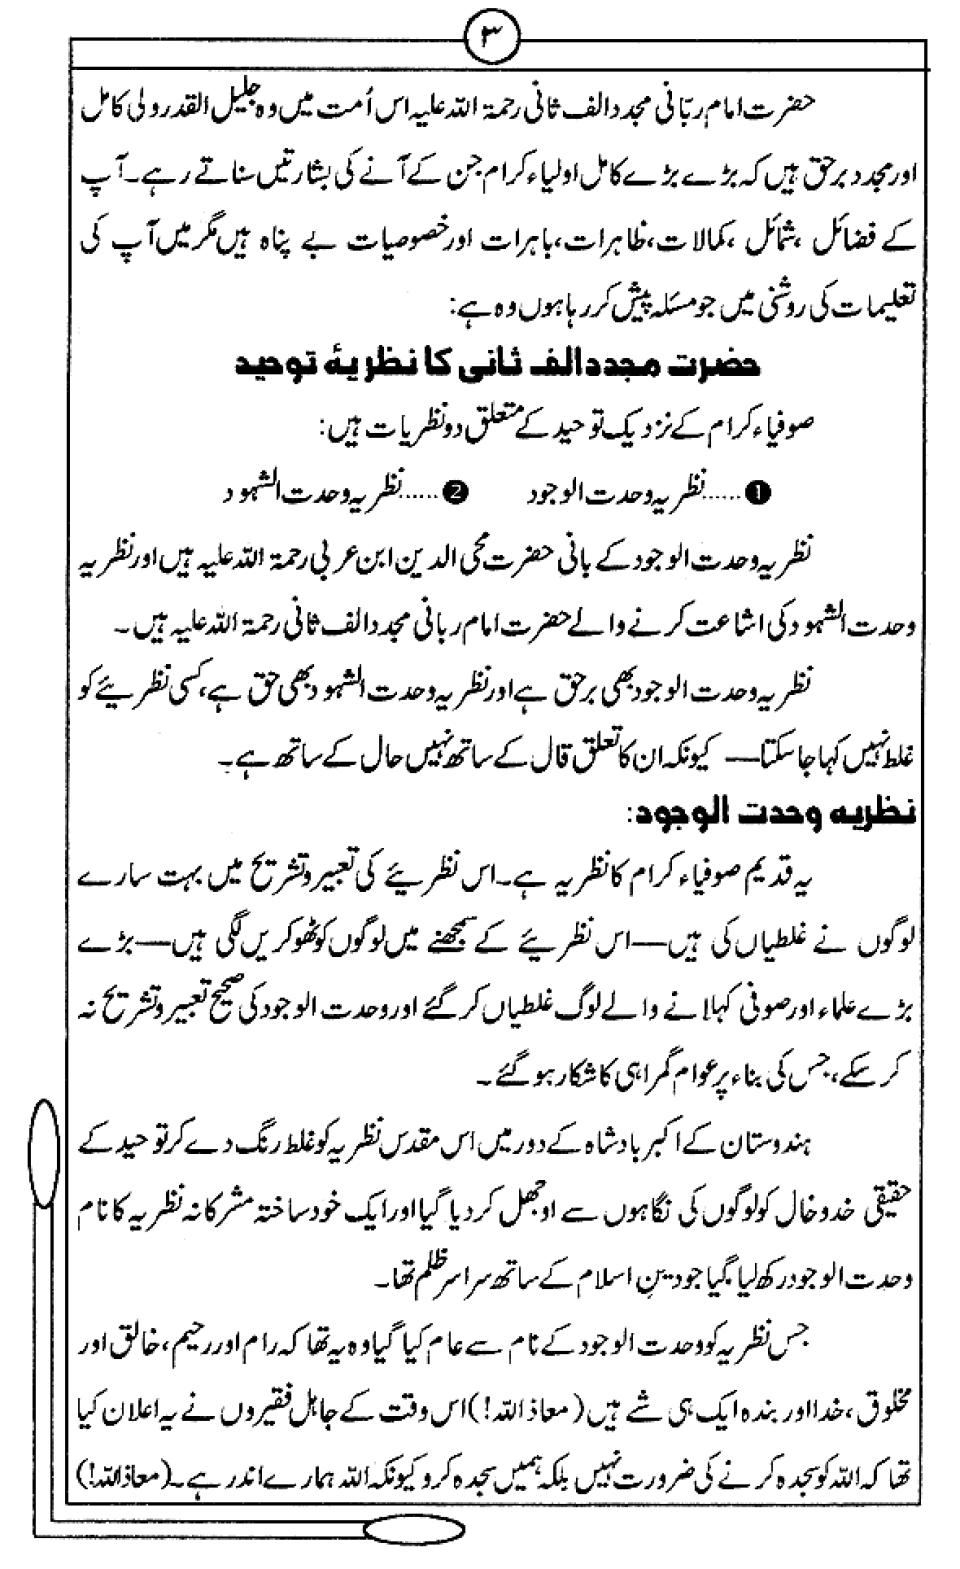 ۳
حضرت امام ربّانی مجدد الف ثانی رحمۃ اللہ علیہ اس اُمت میں وہ جلیل القدر ولی کامل
اور مجدد برحق ہیں کہ بڑے بڑے کامل اولیاء کرام جن کے آنے کی بشارتیں سناتے رہے۔ آپ
کے فضائل ،شمائل ،کمالات، ظاہرات، باہرات اور خصوصیات بے پناہ ہیں مگر میں آپ کی
تعلیمات کی روشنی میں جو مسئلہ پیش کر رہا ہوں وہ ہے:
حضرت مجدد الف ثانی کا نظریۂ توحید
صوفیاء کرام کے نزدیک توحید کے متعلق دو نظریات ہیں:
❶......نظریہ وحدت الوجود ❷......نظریہ وحدت الشہود
نظریہ وحدت الوجود کے بانی حضرت محی الدین ابن عربی رحمۃ اللہ علیہ ہیں اور نظریہ
وحدت الشہود کی اشاعت کرنے والے حضرت امام ربانی مجدد الف ثانی رحمۃ اللہ علیہ ہیں۔
نظریہ وحدت الوجود بھی برحق ہے اور نظریہ وحدت الشہود بھی حق ہے، کسی نظریئے کو
غلط نہیں کہا جا سکتا— کیونکہ ان کا تعلق قال کے ساتھ نہیں حال کے ساتھ ہے۔
نظریہ وحدت الوجود:
یہ قدیم صوفیاء کرام کا نظریہ ہے۔ اس نظریئے کی تعبیر و تشریح میں بہت سارے
لوگوں نے غلطیاں کی ہیں—اس نظریئے کے سمجھنے میں لوگوں کو ٹھوکریں لگی ہیں—بڑے
بڑے علماء اور صوفی کہلانے والے لوگ غلطیاں کر گئے اور وحدت الوجود کی صحیح تعبیر و تشریح نہ
کر سکے، جس کی بناء پر عوام گمراہی کا شکار ہو گئے۔
ہندوستان کے اکبر بادشاہ کے دور میں اس مقدس نظریہ کو غلط رنگ دے کر توحید کے
حقیقی خدوخال کو لوگوں کی نگاہوں سے اوجھل کر دیا گیا اور ایک خود ساختہ مشرکانہ نظریہ کا نام
وحدت الوجود رکھ لیا گیا جو دینِ اسلام کے ساتھ سراسر ظلم تھا۔
جس نظریہ کو وحدت الوجود کے نام سے عام کیا گیا وہ یہ تھا کہ رام اور رحیم، خالق اور
مخلوق، خدا اور بندہ ایک ہی شے ہیں (معاذ اللہ!) اس وقت کے جاہل فقیروں نے یہ اعلان کیا
تھا کہ اللہ کو سجدہ کرنے کی ضرورت نہیں بلکہ ہمیں سجدہ کرو کیونکہ اللہ ہمارے اندر ہے۔ (معاذ اللہ!)